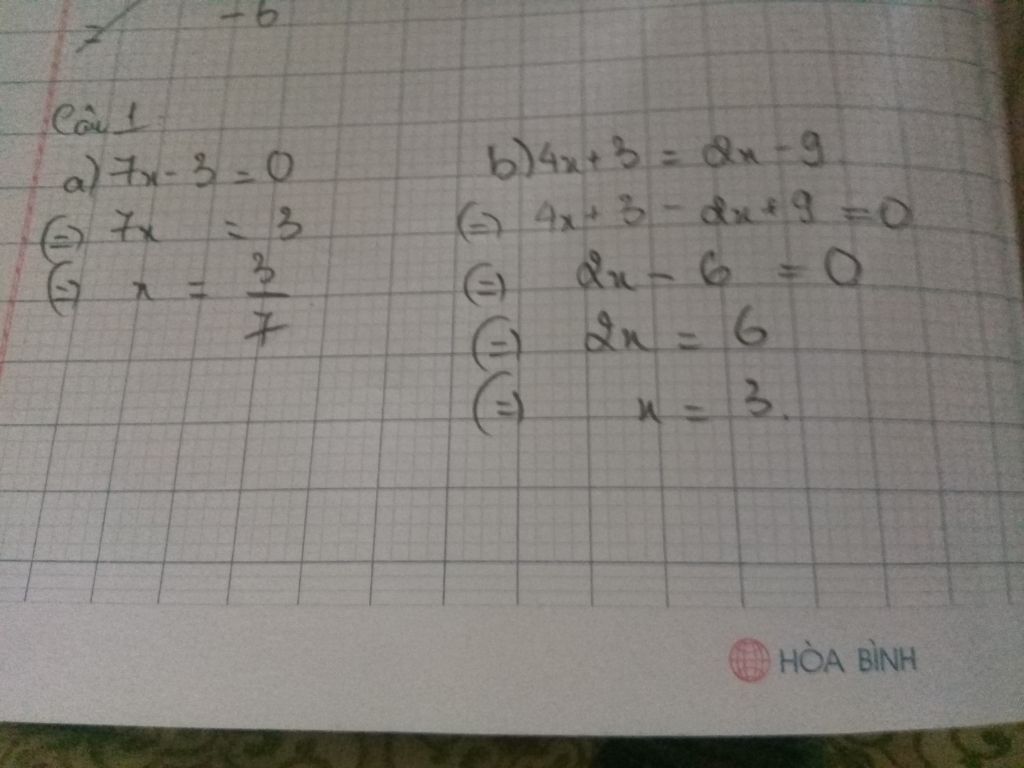 7 -6
Câu 1
a) 7x - 3 = 0
(=) 7x = 3
(=) x = 3/7
b) 4x + 3 = 2x - 9
(=) 4x + 3 - 2x + 9 = 0
(=) 2x - 6 = 0
(=) 2x = 6
(=) x = 3.
HÒA BÌNH